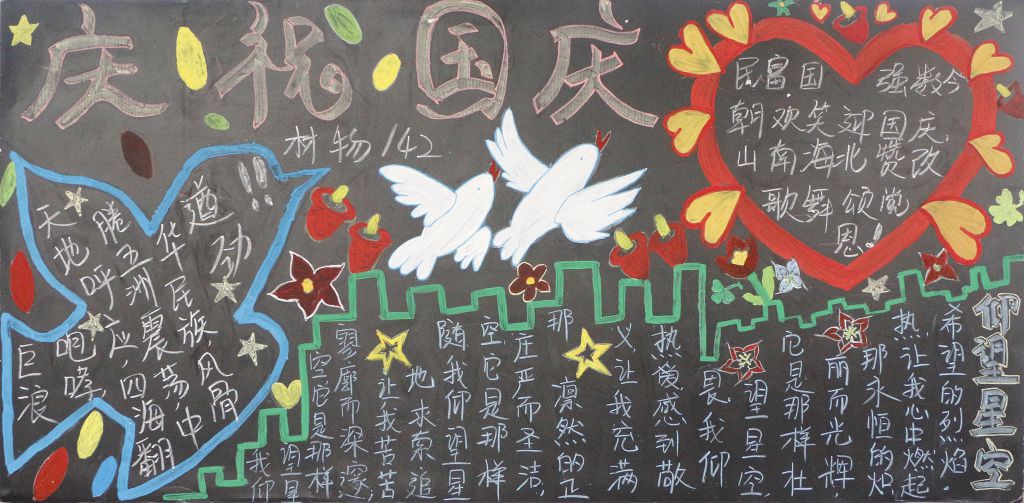 庆祝国庆
材物142
巨浪咆哮
天地呼应,四海翻
腾五洲震荡,中
华民族风骨
遒劲!!
民昌国 强教今
朝欢笑迎国庆,
山南海北赞改
歌舞颂党
恩!
仰望星空
希望的烈焰.
热让我心中燃起
那永恒的炽
丽而光辉,
它是那样壮
望星空,
畏,我仰
热爱感到敬
义让我充满
那凛然的正
庄严而圣洁,
空它是那样
随我仰望星
地求索追
让我苦苦
寥廓而深邃,
空它是那样
我仰望星